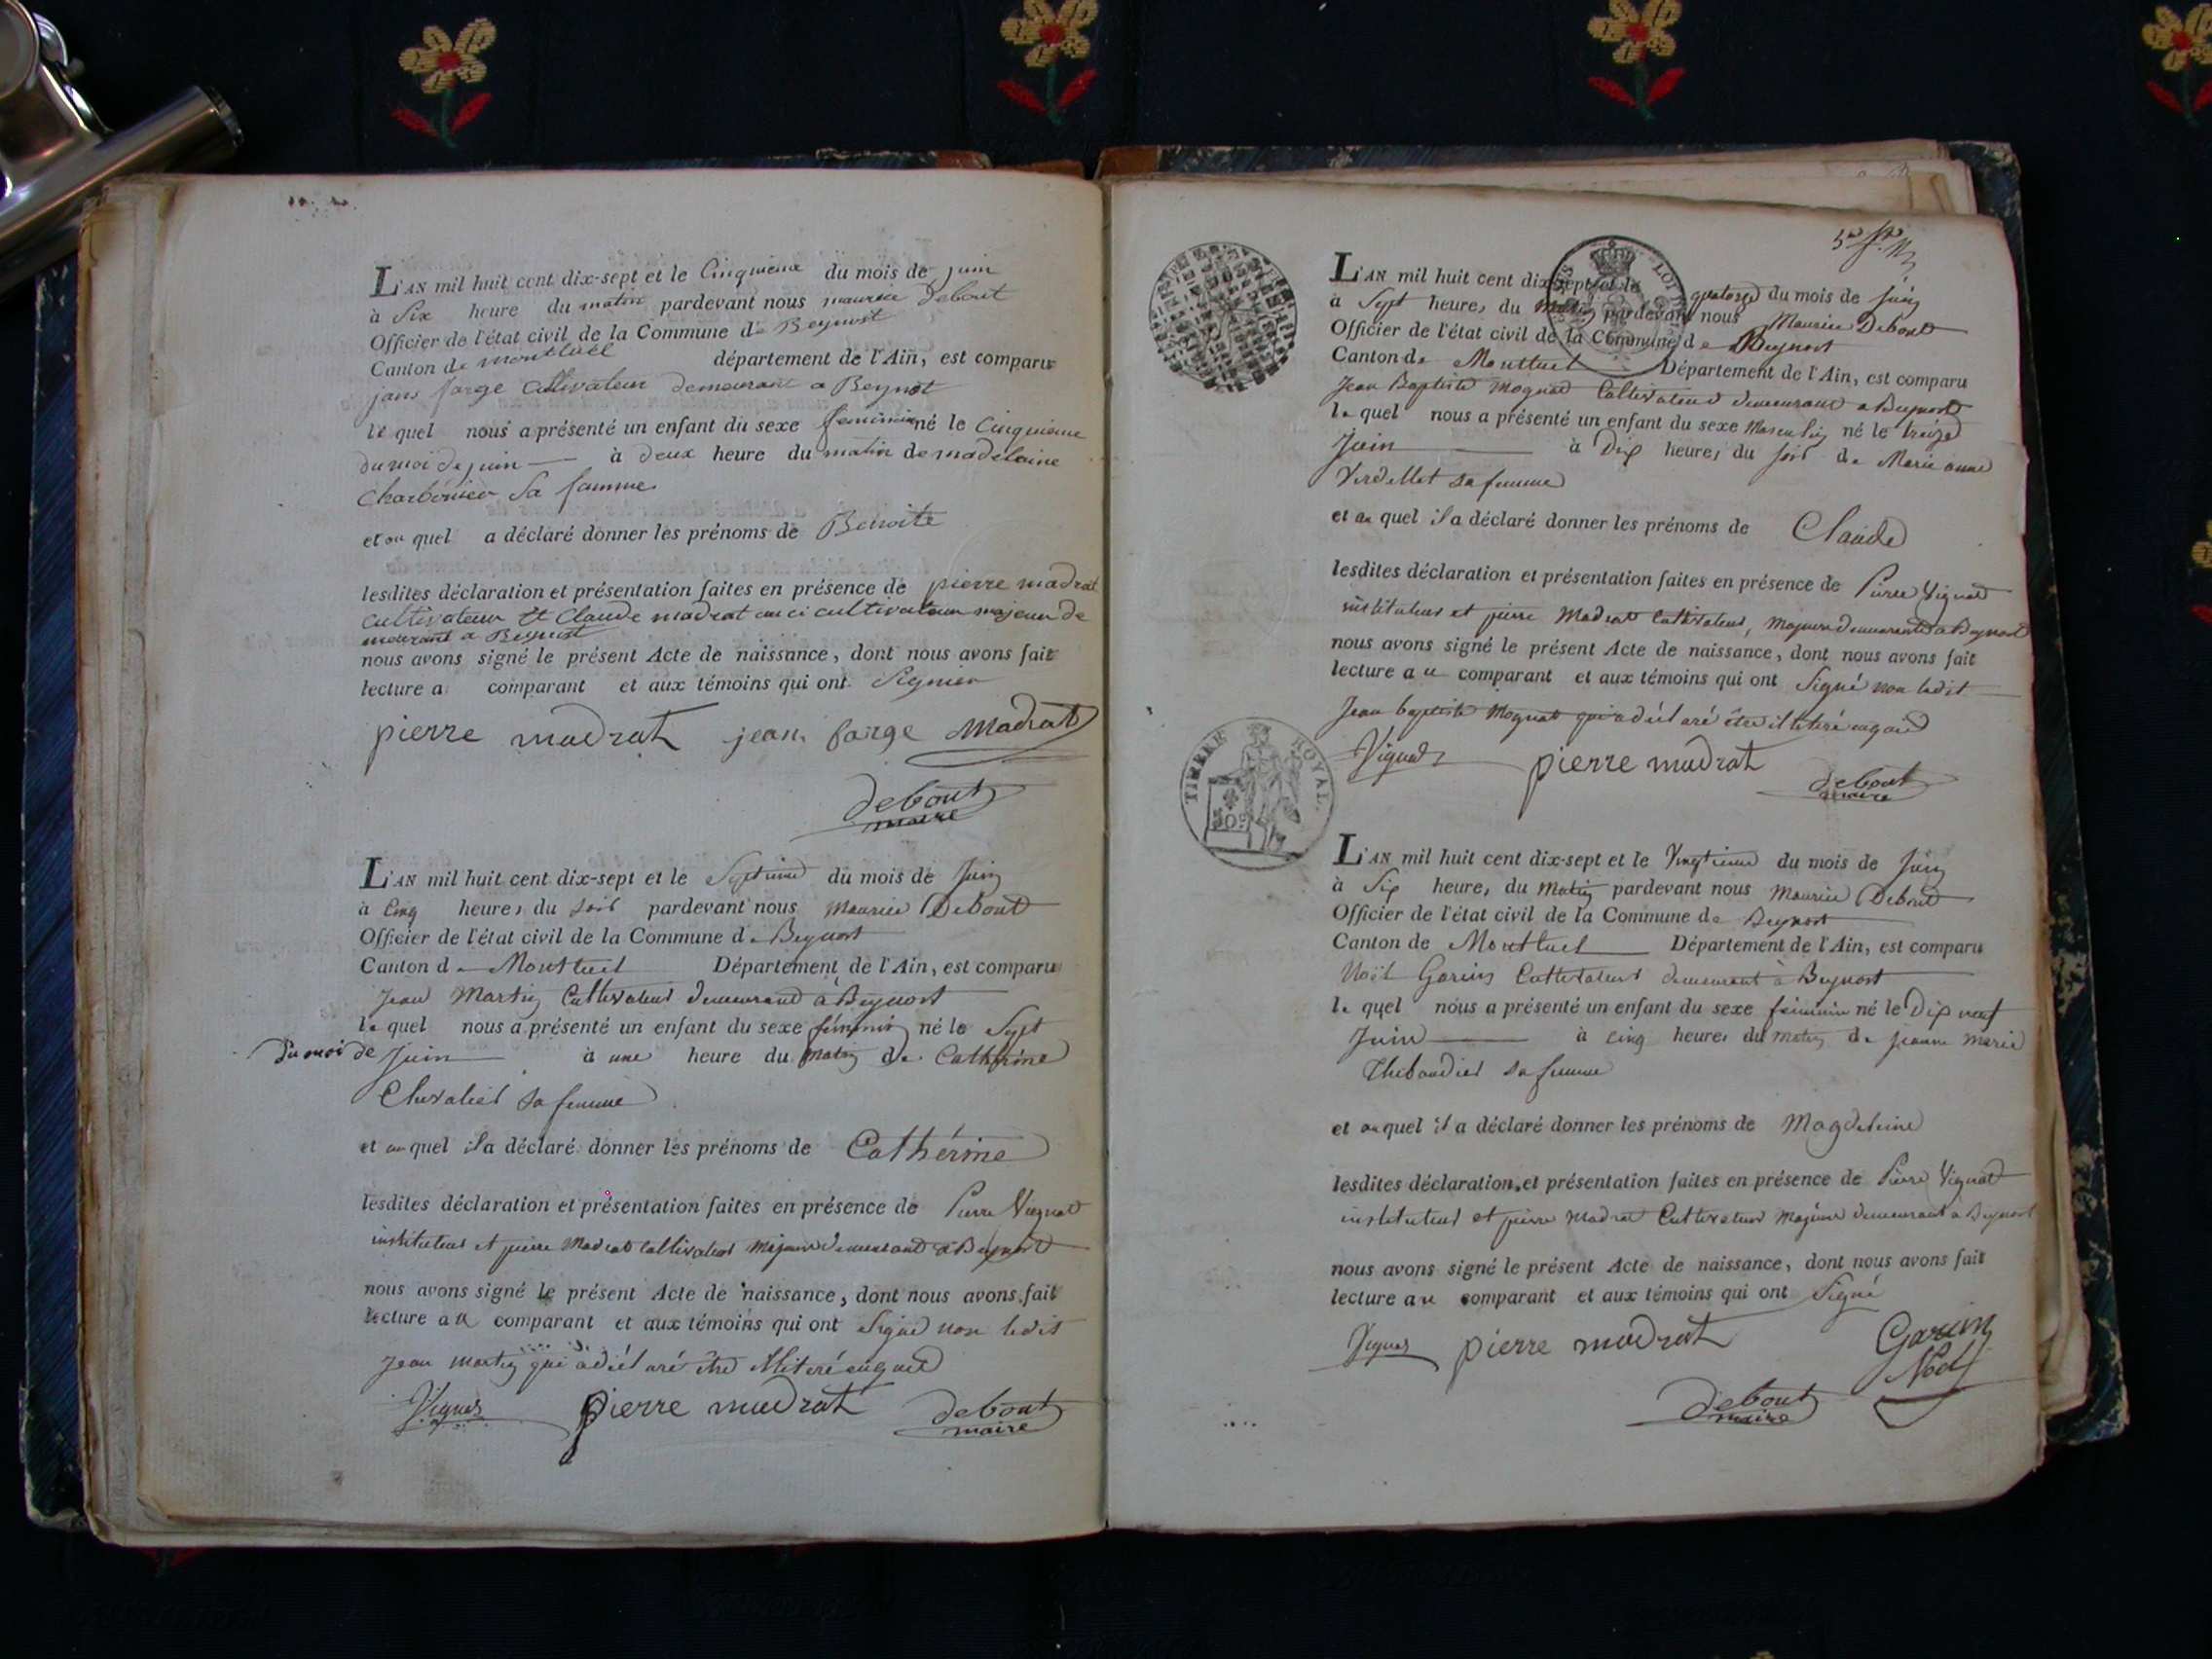 L'AN mil huit cent dix-sept et le Cinquieme du mois de juin
à Six heure du matin pardevant nous maurice Debout
Officier de l'état civil de la Commune de Beynost
Canton de montluel département de l'Ain, est comparu
jean farge cultivateur demeurant a Beynost
le quel nous a présenté un enfant du sexe feminin né le Cinquieme
du moi de juin à deux heure du matin de madelaine
Charbonier Sa famme
et au quel a déclaré donner les prénoms de Benoite
lesdites déclaration et présentation faites en présence de pierre madrat
cultivateur et Claude madrat au ci cultivateur majeur de
meurant a Beynost
nous avons signé le présent Acte de naissance, dont nous avons fait
lecture a comparant et aux témoins qui ont Signier
pierre madrat jean farge Madrat
debout
maire
L'AN mil huit cent dix-sept et le Septieme du mois de Juin
à Cinq heures du soir pardevant nous Maurice Debout
Officier de l'état civil de la Commune de Beynost
Canton de Montluel Département de l'Ain, est comparu
Jean Martin Cultivateur demeurant à Beynost
le quel nous a présenté un enfant du sexe féminin né le Sept
du moi de Juin à une heure du matin de Cathérine
Chevalier sa femme
et au quel il a déclaré donner les prénoms de Cathérine
lesdites déclaration et présentation faites en présence de Pierre Vignat
instituteur et pierre Madrat Cultivateur Majeurs demeurant à Beynost
nous avons signé le présent Acte de naissance, dont nous avons fait
lecture au comparant et aux témoins qui ont Signé non ledit
Jean martin qui a déclaré être illiteré enquis
Vignat pierre madrat debout
maire
L'AN mil huit cent dix-sept et le quatorze du mois de Juin
à Sept heures du Matin pardevant nous Maurice Debout
Officier de l'état civil de la Commune de Beynost
Canton de Montluel Département de l'Ain, est comparu
Jean Baptiste Mognat Cultivateur demeurant a Beynost
le quel nous a présenté un enfant du sexe Masculin né le treize
Juin à Dix heures du soir de Marie anne
Verdellet sa femme
et au quel il a déclaré donner les prénoms de Claude
lesdites déclaration et présentation faites en présence de Pierre Vignat
instituteur et pierre Madrat Cultivateur, Majeurs demeurants à Beynost
nous avons signé le présent Acte de naissance, dont nous avons fait
lecture au comparant et aux témoins qui ont Signé non ledit
Jean baptiste Mognat qui a déclaré être illiteré enquis
TIMBRE ROYAL
50c
Vignat pierre madrat debout
maire
L'AN mil huit cent dix-sept et le Vingtieme du mois de Juin
à Six heures du Matin pardevant nous Maurice Debout
Officier de l'état civil de la Commune de Beynost
Canton de Montluel Département de l'Ain, est comparu
Noël Garin Cultivateur demeurant à Beynost
le quel nous a présenté un enfant du sexe féminin né le Dix neuf
Juin à cinq heures du matin de jeanne marie
Thibaudier sa femme
et au quel il a déclaré donner les prénoms de Magdeleine
lesdites déclaration et présentation faites en présence de Pierre Vignat
instituteur et pierre Madrat Cultivateur Majeurs demeurant à Beynost
nous avons signé le présent Acte de naissance, dont nous avons fait
lecture au comparant et aux témoins qui ont Signé
Vignat pierre madrat Garin
Noel
debout
maire